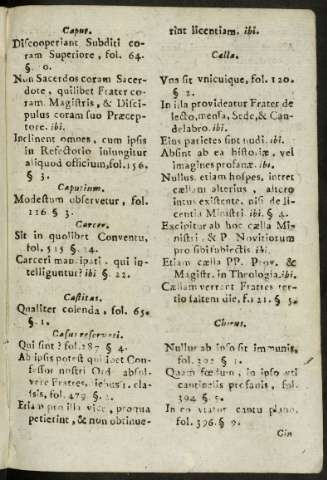 Caput.
Discooperiant Subditi co-
ram Superiore, fol. 64.
§. 0.
Non Sacerdos coram Sacer-
dote, quilibet Frater co-
ram Magistris, & Disci-
pulus coram suo Præcep-
tore. ibi.
Inclinent omnes, cum ipsis
in Refectorio iniungitur
aliquod officium, fol. 156.
§ 3.
Caputium.
Modestum observetur, fol.
116 § 3.
Carcer.
Sit in quolibet Conventu,
fol. 515 §. 14.
Carceri mancipati, qui in-
telliguntur? ibi §. 22.
Castitas.
Qualiter colenda, fol. 65.
§. 1.
Casus reservati.
Qui sint? fol. 287 §. 4.
Ab ipsis potest quilibet Con-
fessor nostri Ord. absol-
vere Fratres,
sis, fol. 479 §. 2.
Etiam pro illa vice, proqua
petierint, & non obtinue-
rint licentiam. ibi.
Cælla.
Vna sit vnicuique, fol. 120.
§ 2.
In illa provideatur Frater de
lecto, mensa, Sede, & Can-
delabro. ibi.
Eius parietes sint nudi. ibi.
Absint ab ea historiæ, vel
imagines profanæ. ibi.
Nullus, etiam hospes, intret
cællam alterius, altero
intus existente, nisi de li-
centia Ministri. ibi §. 4.
Excipitur ab hoc cælla Mi-
nistri, & P. Novitiorum
pro sibi subiectis ibi.
Etiam cælla PP. Prov. &
Magistr. in Theologia. ibi.
Cællam verrent Fratres ter-
tio saltem die, f. 121 §. 5.
Chorus.
Nullus ab ipso sit immunis,
fol. 392 § 1.
Quam fœdum, in ipso uti
cantinelis profanis, fol.
394 §. 5.
In eo vtatur cantu plano,
fol. 396. § 9.
Cin